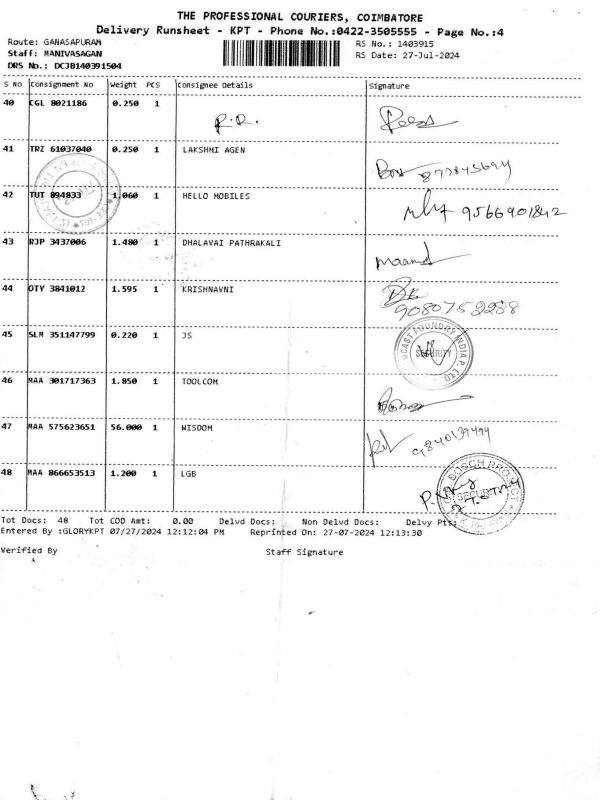 THE PROFESSIONAL COURIERS, COIMBATORE
Delivery Runsheet - KPT - Phone No.:0422-3505555 - Page No.:4
Route: GANASAPURAM RS No.: 1403915
Staff: MANIVASAGAN RS Date: 27-Jul-2024
DRS No.: DCJB140391504
S No Consignment No Weight PCS Consignee Details Signature
40 CGL 8021186 0.250 1 P.R.
41 TRZ 61037040 0.250 1 LAKSHMI AGEN
42 TUT 894833 1.060 1 HELLO MOBILES 9566901842
43 RJP 3437006 1.480 1 DHALAVAI PATHRAKALI
44 OTY 3841012 1.595 1 KRISHNAVNI
9080752288
45 SLM 351147799 0.220 1 JS SECURITY
46 MAA 301717363 1.850 1 TOOLCOM
47 MAA 575623651 56.000 1 WISDOM
48 MAA 866653513 1.200 1 LGB
BOSCH PROJECT SECURITY
Tot Docs: 48 Tot COD Amt: 0.00 Delvd Docs: Non Delvd Docs: Delvy Pts:
Entered By :GLORYKPT 07/27/2024 12:12:04 PM Reprinted On: 27-07-2024 12:13:30
Verified By Staff Signature